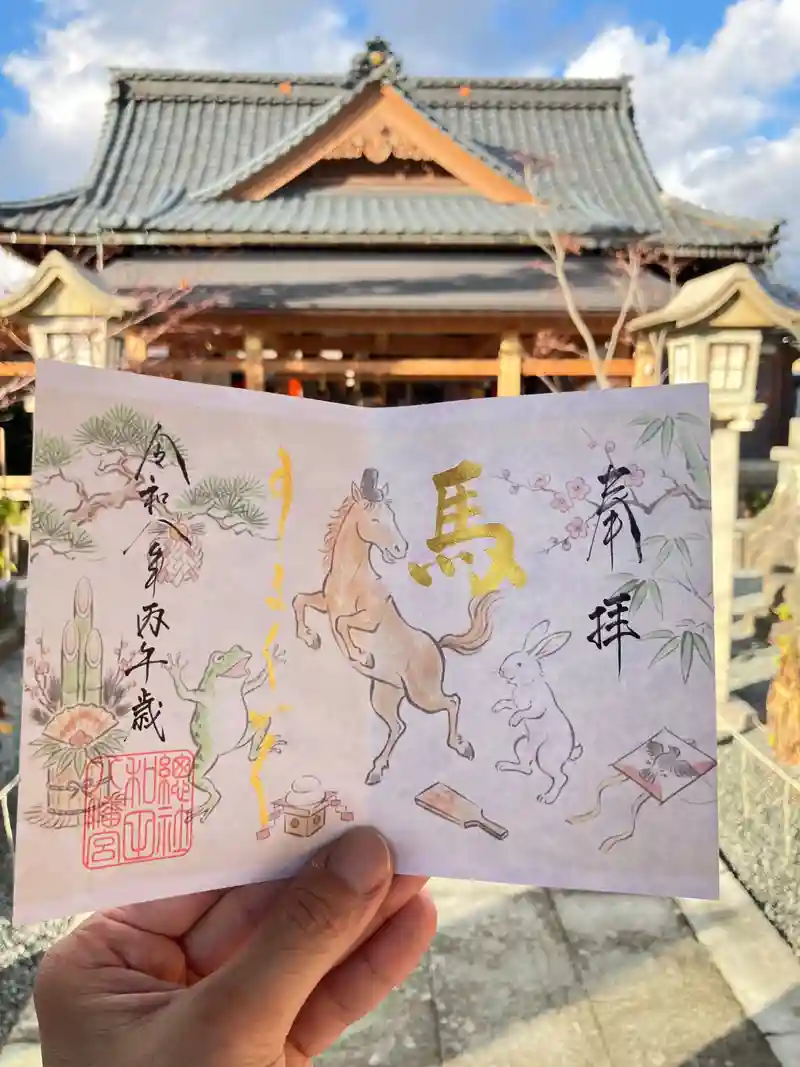 奉拝
馬
令和八年丙午歳
總社
和田
八幡宮